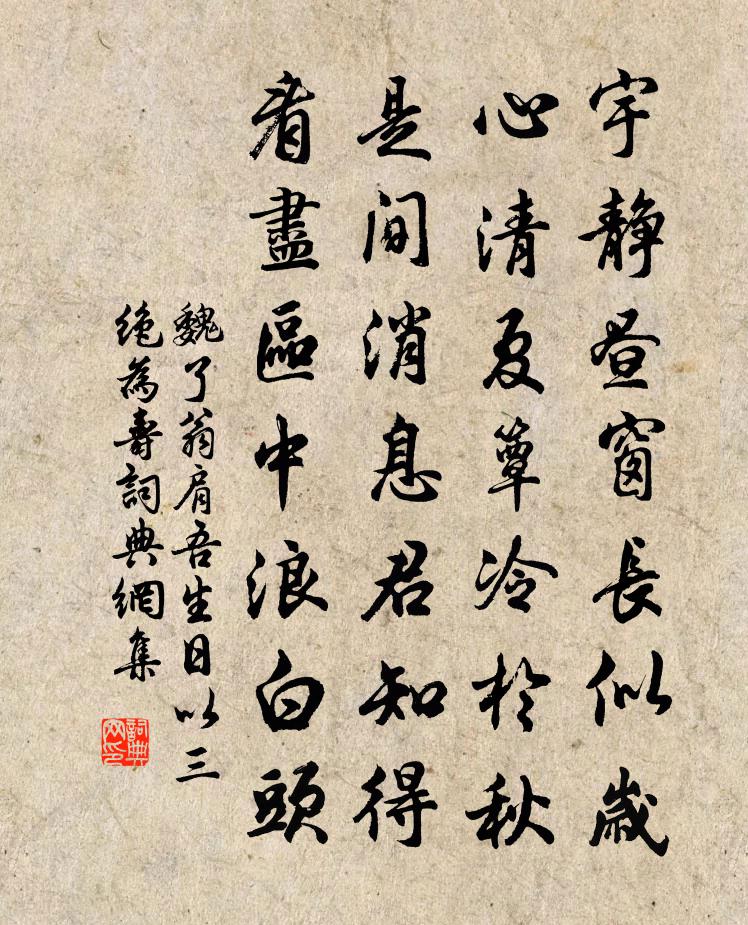 宇靜晝窗長似歲
心清夏簟冷於秋
是間消息君知得
看盡區中浪白頭
魏了翁肩吾生日以三
絶為壽詞典網集
詞典
网印